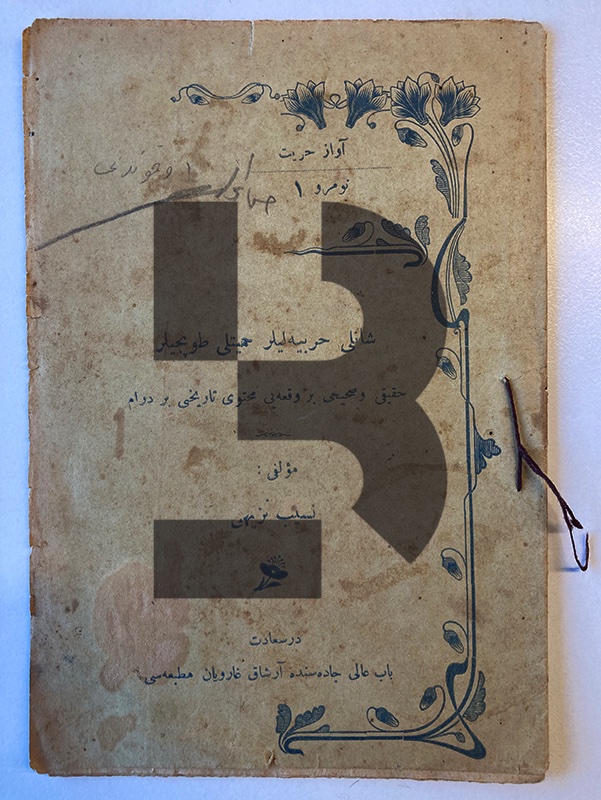 آواز حریت
نومرو ۱
شانلی حربیه‌لیلر حمیتلی طوپجیلر
حقیقی و صحیحی بر وقعه‌یی محتوی تاریخی بر درام
مؤلفی :
نریمان
در سعادت
باب عالی جاده‌سنده آرشاق غارویان مطبعه‌سی